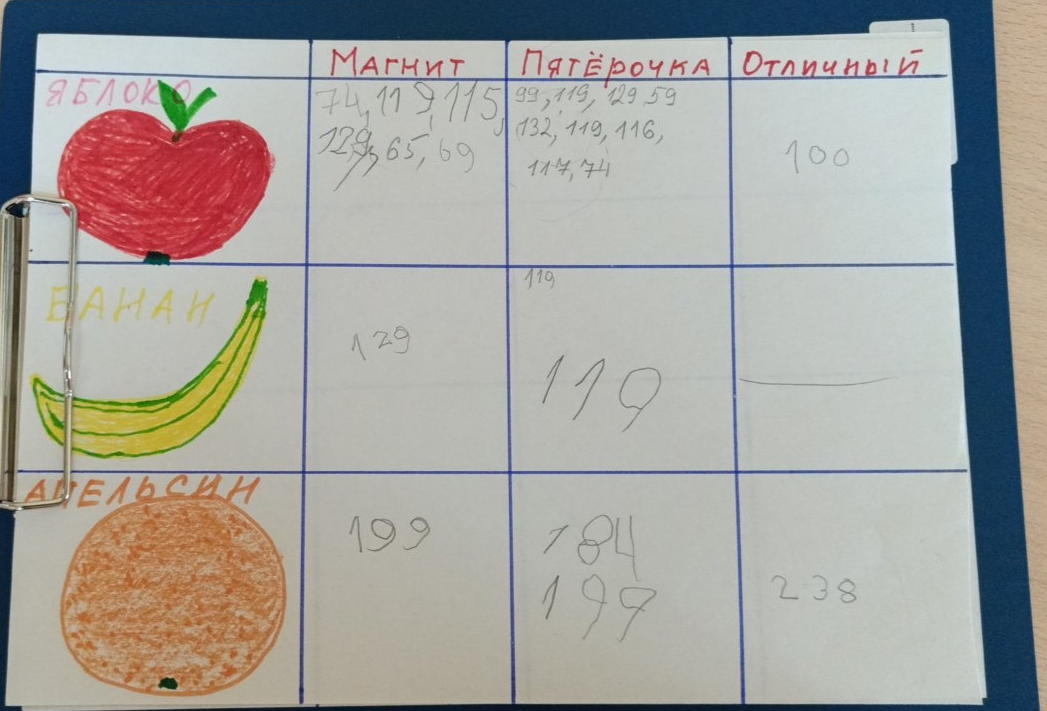 Магнит Пятёрочка Отличный
ЯБЛОКО
74, 119, 115,
129, 65, 69
99, 119, 129 59
132, 119, 116,
117, 74
100
БАНАН
129
119
119
АПЕЛЬСИН
199
184
199
238